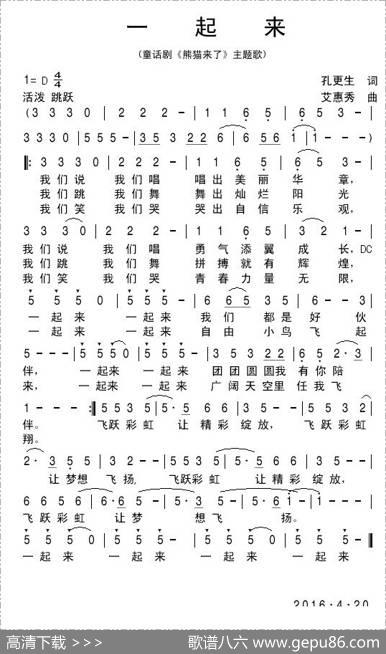 一 起 来
(童话剧《熊猫来了》主题歌)
1= D 4/4 孔更生 词
活泼 跳跃 艾惠秀 曲
(3 3 3 0 | 2 2 2 - | 1 1 6 5 | 6 5 3 - |
3 3 3 0 | 5 5 5 - | 3 5 3 2 2 6 | 6 5 6 1 1 - - )
‖: 3 3 3 - | 2 2 2 - | 1 1 6 5 | 6 5 3 - |
我 们 说 我 们 唱 唱 出 美 丽 华 章,
我 们 跳 我 们 舞 舞 出 灿 烂 阳 光
我 们 笑 我 们 哭 哭 出 自 信 乐 观,
3 3 3 0 | 2 2 2 - | 1 1 6 5 | 2 1 1 - |
我 们 说 我 们 唱 勇 气 添 翼 成 长, DC
我 们 跳 我 们 舞 拼 搏 就 有 辉 煌,
我 们 笑 我 们 哭 青 春 力 量 无 限,
5 5 5 0 | 5 5 5 0 | 6 6 5 3 | 2 1 2 3 |
一 起 来 一 起 来 我 们 都 是 好 伙
一 起 来 一 起 来 自 由 小 鸟 飞 起
5 - - - | 5 5 5 0 | 5 5 5 - | 3 5 3 2 2 | 6 5 2· 3 |
伴, 一起来 一起来 团 团 圆 圆我 有 你 陪
来, 一起来 一起来 广 阔 天 空里 任 我 飞
1 - - - :‖ 5 5 3 5 | 5· 5 6 6 | 5 5 3 5 - | 5 5 3 2 |
伴。 飞跃彩 虹 让 精彩 绽放, 飞跃彩 虹
翔。
2· 3 5 5 | 3 2 - - | 5 5 3 5 | 5· 5 6 6 | 3 5 5 - |
让 梦想 飞 扬, 飞跃彩 虹 让 精 彩 绽放,
6 6 5 6 | 6· 6 5 - | 5· 3 5 - | 5· 6 1 - | 1 - - - |
飞 跃 彩 虹 让 梦 想 飞 扬。
5 5 5 0 | 5 5 5 0 | 5 5 5 0 | 5 5 5 0 ‖
一 起 来 一 起 来 一 起 来 一 起 来
2016·4·20
高清下载 >>> 歌谱八六 www.gepu86.com